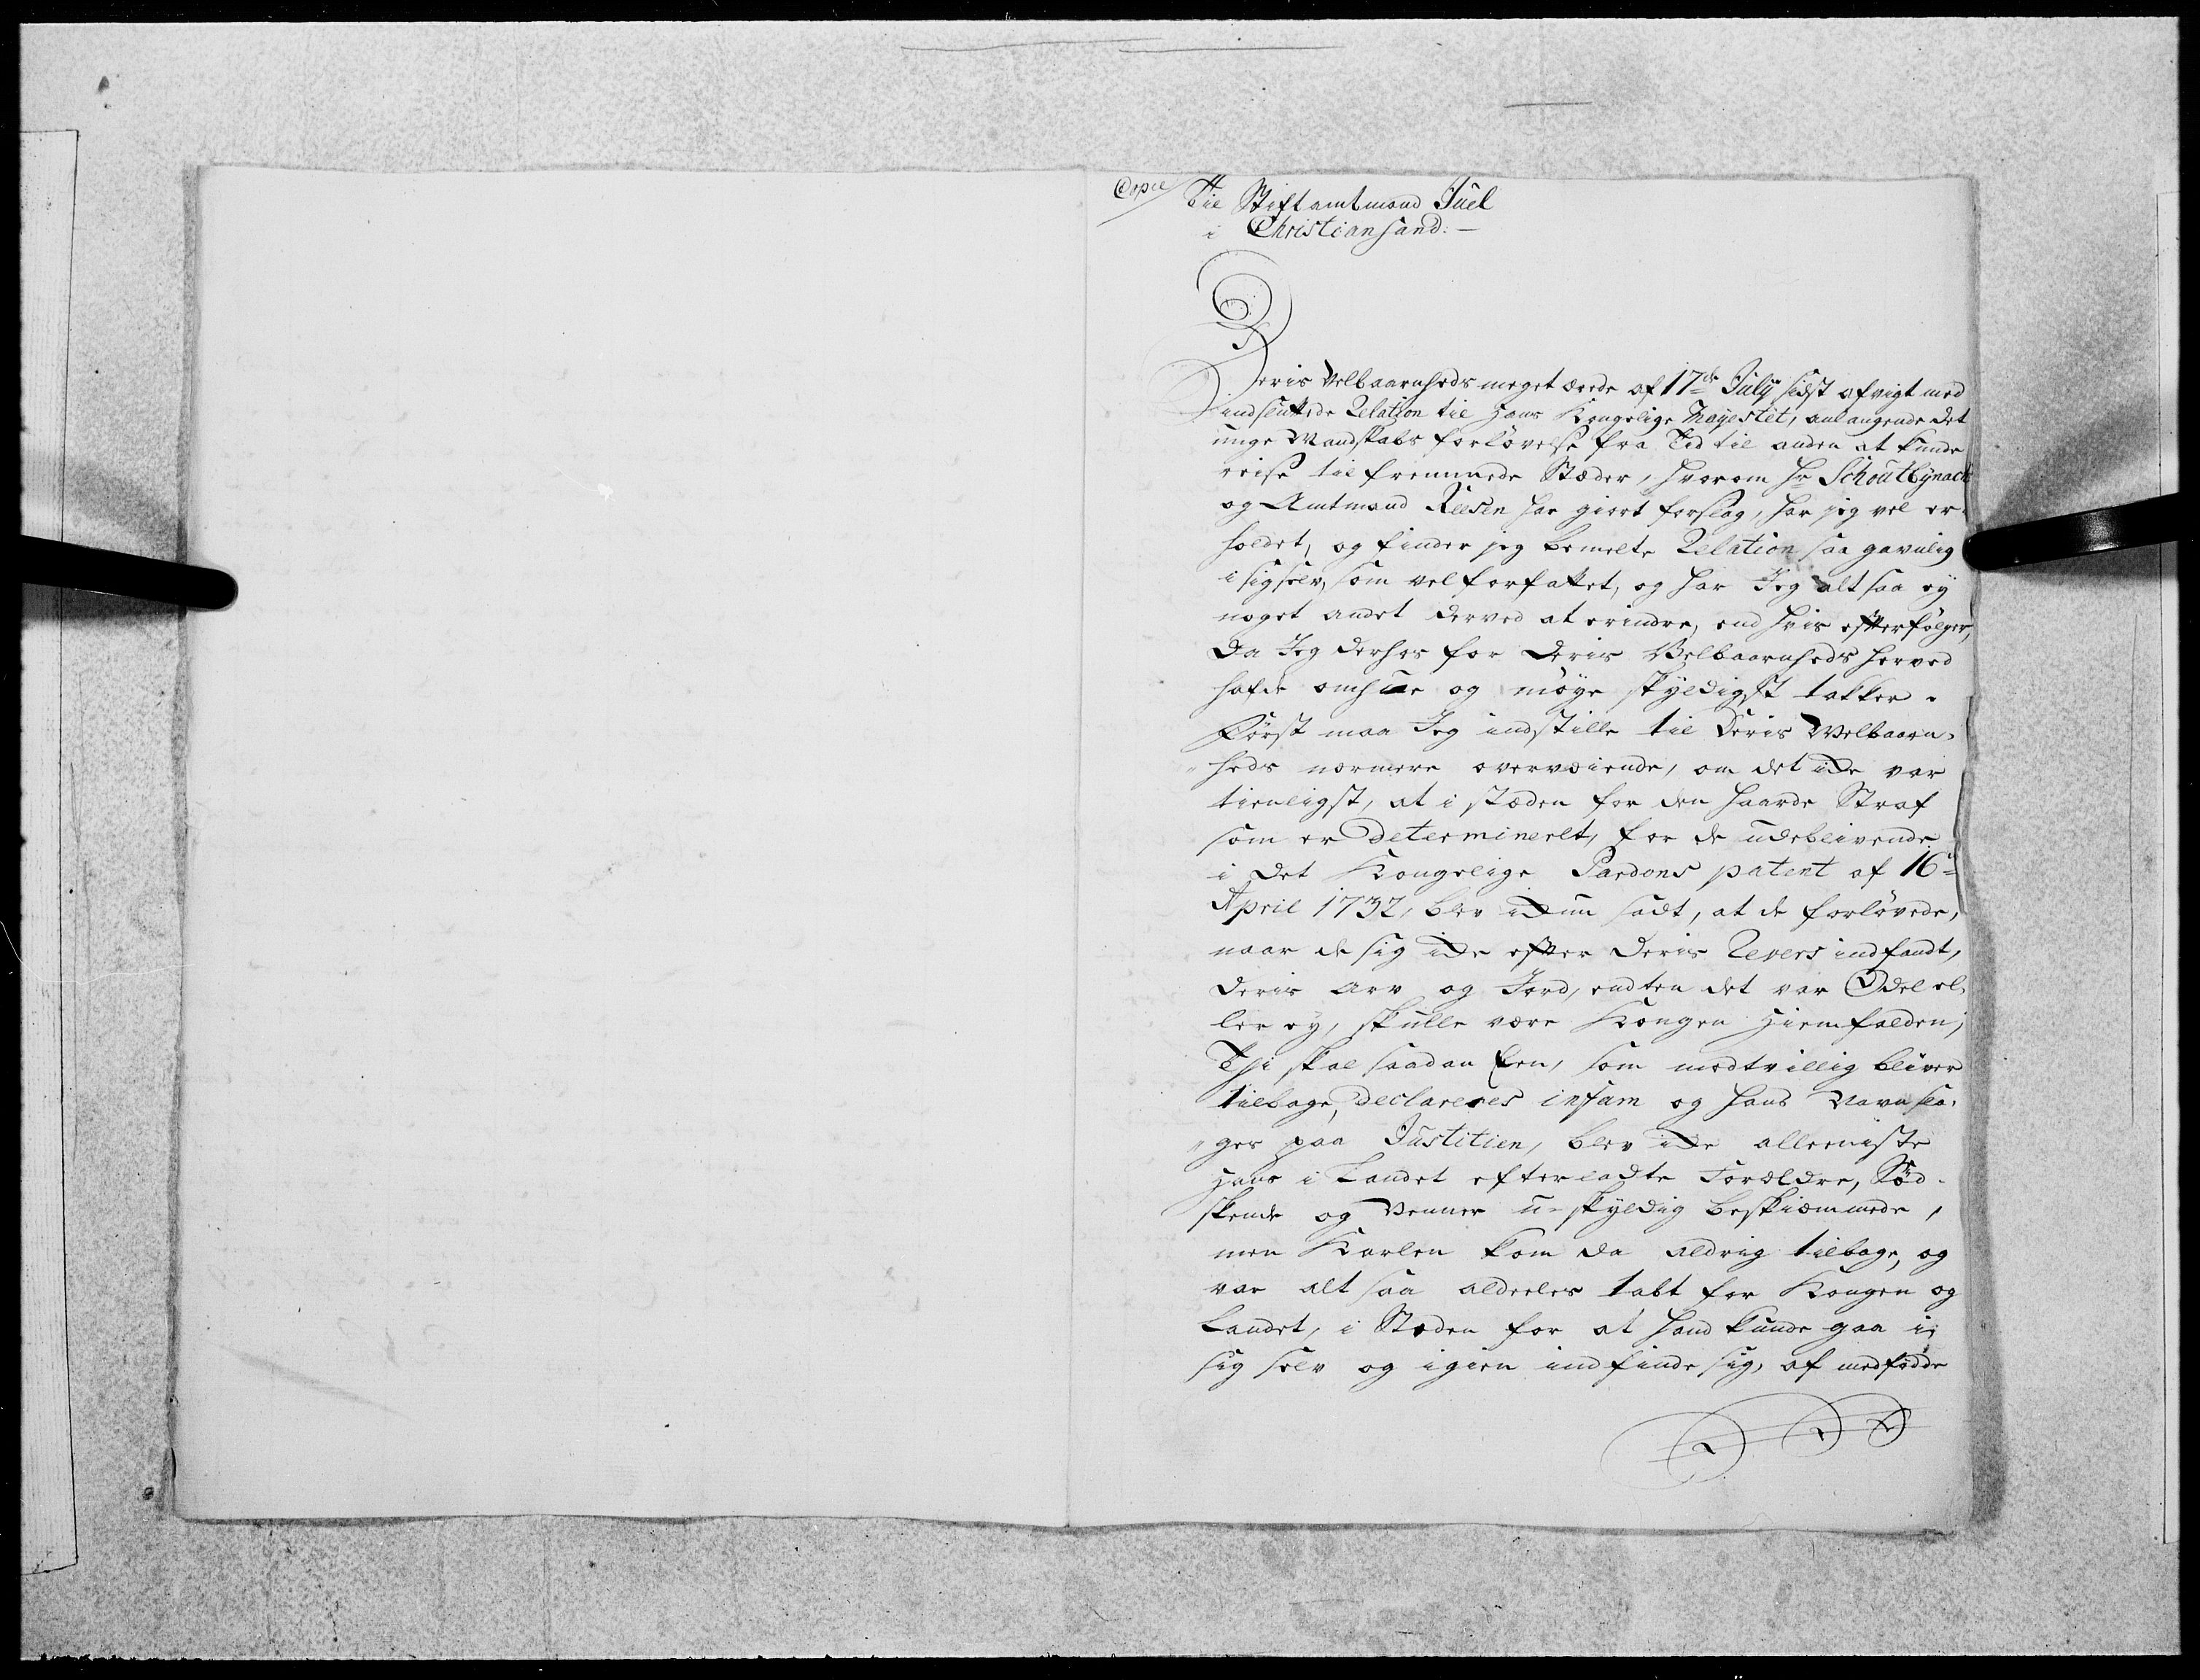 Copie
Til Stiftamtmand Juel
i Christiansand:
Deris Velbaarnheds meget ærede af 17de July sidst afvigt med
indsluttede Relation til Hans Kongelige Mayestet, anlangende det
unge Mandskabs forløvelse fra Tid til anden at kunde
reise til fremmede Stæder, hvorom Hr Schoutbynach
og Amtmand Reesen har giort forslag, har jeg vel er-
holdet, og finder jeg bemelte Relation saa gavnlig
i sig selv, som vel forfattet, og har Jeg alt saa ey
noget andet derved at erindre, end hvis efterfølger,
da Jeg derhos for Deris Velbaarnheds herved
hafde omhue og møye skyldigst takker.
Først maa Jeg indstille til Deris Velbaarn-
heds nærmere overveiende, om det icke var
tienligst, at i stæden for den haarde Straf
som er determineret, for de udeblivende
i det Kongelige Pardons patent af 16de
April 1732, blev ickun sadt, at de forløvede,
naar de sig icke efter deris Revers indfandt,
deris Arv og Jord, endten det var Odel el-
ler ey, skulle være Kongen Hiemfalden;
Thi skal saadan Een, som modtvillig bliver
tilbage, declareres infam og hans Navn sla-
ges paa Justitien, blev icke alleeniste
Hans i Landet efterladte Forældre, Sød-
skende og Venner u-skyldig beskiæmmede,
men Karlen kom da aldrig tilbage, og
var alt saa aldeeles tabt for Kongen og
Landet, i Stæden for at hand kunde gaa i
sig selv og igien indfinde sig, af medfødde